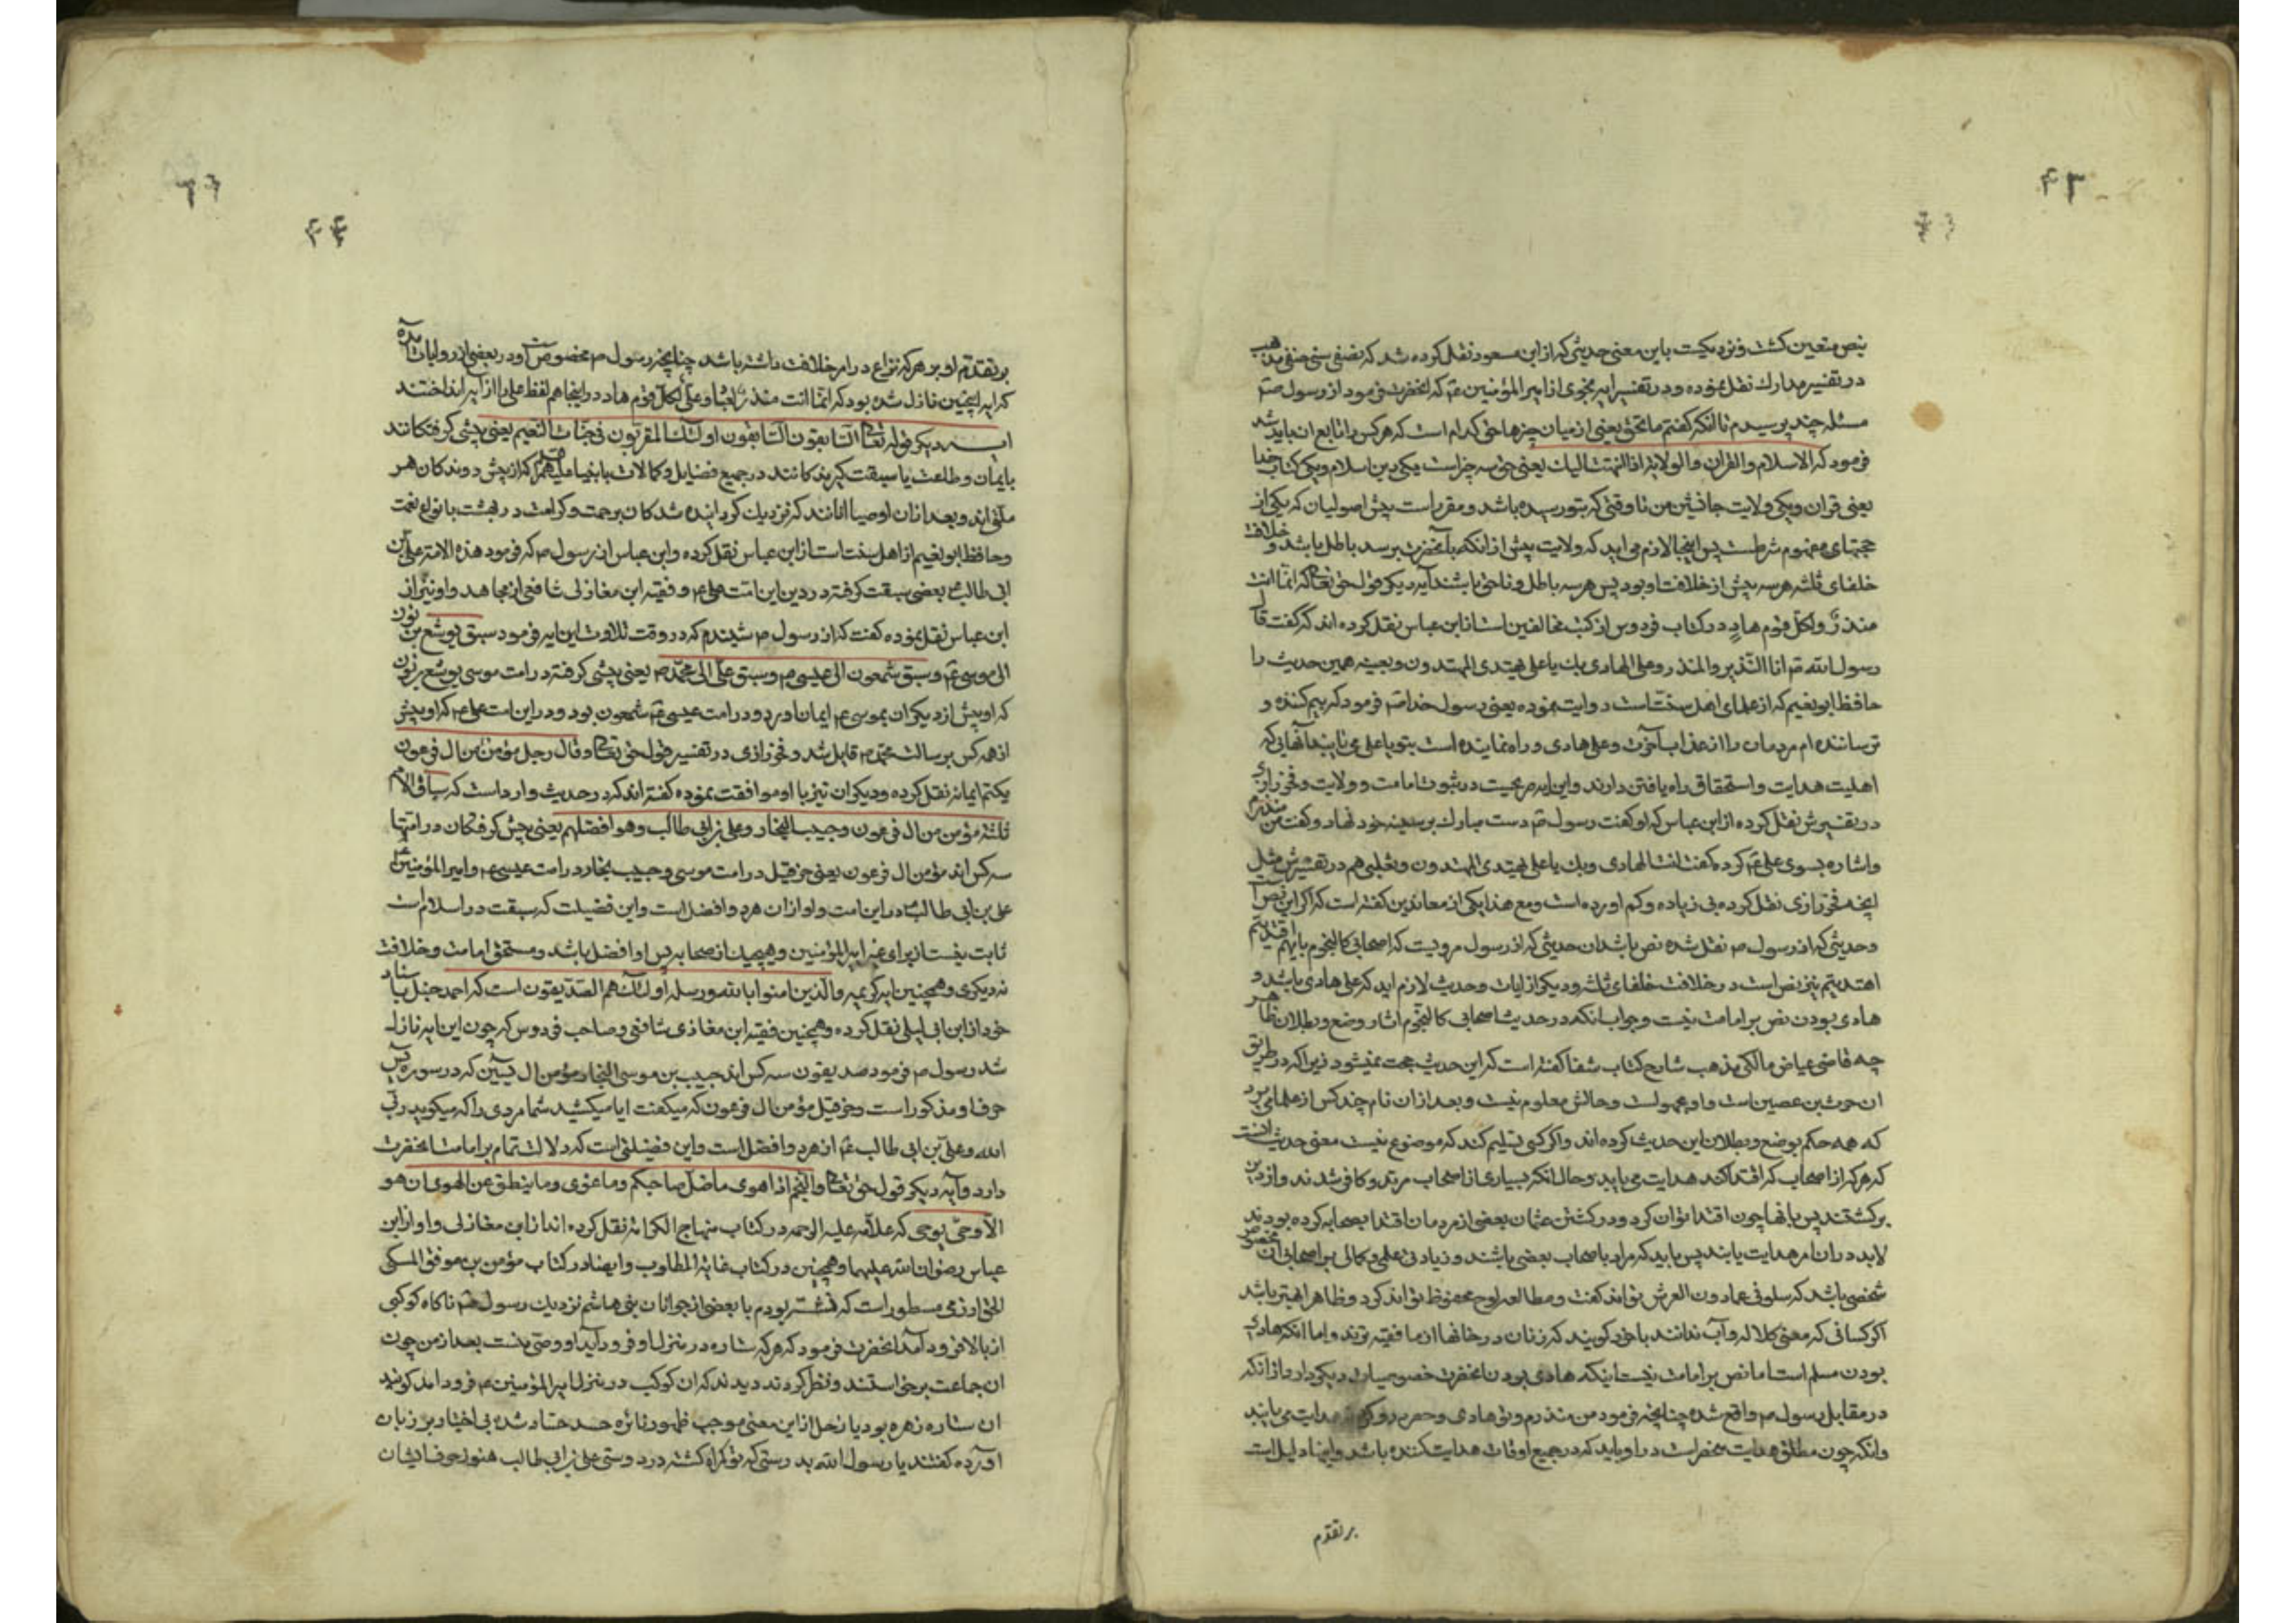 ۴۳
بنص متعین کشت و نزدیکست باین معنی حدیثی که از ابن مسعود نقل کرده شد که نصفی سنی حنفی مذهب
در تفسیر مدارک نقل نموده و در تفسیر ایه نجوی از امیر المؤمنین ع که انحضرت فرمود از رسول ص
مسئله چند پرسیدم تا انکه کفتم ما الحق یعنی از میان چیزها حق کدام است که هر کس را تابع ان باید شد
فرمود که الاسلام و القران و الولایة اذا انتهت الیک یعنی حق سه چیز است یکی دین اسلام و یکی کتاب خدا
یعنی قران و یکی ولایت جانشین من تا وقتی که بتو رسیده باشد و مقرر است پیش اصولیان که یکی از
حجتهای مفهوم شرطست پس اینجا لازم می اید که ولایت پیش از انکه بآنحضرت برسد باطل باشد و خلافت
خلفای ثلثه هر سه پیش از خلافت او بود پس هر سه باطل و ناحق باشند آیه دیکر قول حق تعالی که انما انت
منذر ولکل قوم هاد در کتاب فردوس از کتب مخالفین است از ابن عباس نقل کرده اند که کفت قال
رسول الله ص انا النذیر والمنذر وعلی الهادی بک یا علی یهتدی المهتدون و بعینه همین حدیث را
حافظ ابو نعیم که از علمای اهل سنت است روایت نموده یعنی رسول خدا ص فرمود که بیم کننده و
ترساننده ام مردمان را از عذاب آخرت و علی هادی و راه نماینده است بتو یا علی می یابند آنهایی که
اهلیت هدایت و استحقاق راه یافتن دارند و این ایه صریحیت در ثبوت امامت و ولایت و فخر رازی
در تفسیرش نقل کرده از ابن عباس که او کفت رسول ص دست مبارک بر سینه خود نهاد و کفت من منذرم
و اشاره بسوی علی ع کرد و کفت انت الهادی وبک یا علی یهتدی المهتدون و ثعلبی هم در تفسیرش مثل
انچه فخر رازی نقل کرده بی زیاده و کم اورده است و مع هذا یکی از معاندین کفته است که اکر این نص است
و حدیثی که از رسول ص نقل شده نص باشد ان حدیثی که از رسول مرویست که اصحابی کالنجوم بایهم اقتدیتم
اهتدیتم نیز نص است در خلافت خلفای ثلثه و دیکر از ایات و حدیث لازم اید که علی هادی باشد و
هادی بودن نص بر امامت نیست و جواب انکه در حدیث اصحابی کالنجوم اثار وضع و بطلان ظاهر
چه قاضی عیاض مالکی مذهب شارح کتاب شفا کفته است که این حدیث حجت نمیشود زیرا که در طریق
ان حرث بن عصین است و او مجهولست و حالش معلوم نیست و بعد از ان نام چند کس از علمای برد
که همه حکم بوضع و بطلان این حدیث کرده اند و اکر کسی تسلیم کند که موضوع نیست معنی حدیث انست
که هر که از اصحاب که اقتدا کند هدایت می یابید و حال انکه بسیاری از اصحاب مرتد و کافر شدند و از دین
برکشتند پس بانها چون اقتدا توان کرد و در کشتن عثمان بعضی از مردمان اقتدا بصحابه کرده بودند
لابد در ان امر هدایت یابند پس باید که مراد باصحاب بعضی باشند و زیادتی علمی و کمالی بر اصحابی ان مخصوص
شخصی باشد که سلونی عما دون العرش تواند کفت و مطالعه لوح محفوظ تواند کرد و ظاهرا بهتر باشد
اکر کسانی که معنی کلاله و آب ندانند با خود کویند که زنان در خانها از ما فقیه ترند و اما انکه هادی
بودن مسلم است اما نص بر امامت نیست اینکه هادی بودن انحضرت خصوصیات دیکر دارد از انکه
در مقابل رسول ص واقع شده چنانچه فرمود من منذرم و تو هادی و حصر بدو هدایت می یابید
و انکه چون مطلق هدایت منحصر است در او باید که در جمیع اوقات هدایت کننده باشد و ایضا دلیل است
بر تقدم
۴۴
بر تقدم او بر هر که نزاع در امر خلافت داشته باشد چنانچه رسول ص مخصوص است و در بعضی از روایات آمده
که ایه اینچنین نازل شده بود که انما انت منذر لعباد وعلی لکل قوم هاد در اینجا هم لفظ علی را از ایه انداختند
ایـــه دیکر قوله تعالی السابقون السابقون اولئک المقربون فی جنات النعیم یعنی پیشی کرفتکانند
بایمان و طاعت یا سبقت کیرندکانند در جمیع فضایل و کمالات یا انبیا علیهم السلام که از پیش روندکان هر
ملتی اند و بعد از ان اوصیا انانند که نزدیک کردانیده شدکان برحمت و کرامت در بهشت با نواع نعمت
و حافظ ابو نعیم از اهل سنت است از ابن عباس نقل کرده و ابن عباس از رسول ص که فرمود هذه الامة علی بن
ابی طالب ع یعنی سبقت کرفته در دین این امت علی ع و فقیه ابن مغازلی شافعی از مجاهد و او نیز از
ابن عباس نقل نموده کفت که از رسول ص شنیدم که در وقت تلاوت این ایه فرمود سبق یوشع بن نون
الی موسی ع وسبق شمعون الی عیسی ع وسبق علی الی محمد ص یعنی پیشی کرفته در امت موسی یوشع بن نون
که او پیش از دیکران بموسی ع ایمان اورد و در امت عیسی ع شمعون بود و در این امت علی ع که او پیش
از همه کس برسالت محمد ص قایل شد و فخر رازی در تفسیر قول حق تعالی وقال رجل مؤمن من ال فرعون
یکتم ایمانه نقل کرده و دیکران نیز با او موافقت نموده کفته اند که در حدیث وارد است که سباق الامم
ثلثة مؤمن من ال فرعون وحبیب النجار وعلی بن ابی طالب وهو افضلهم یعنی پیش کرفتکان در امتها
سه کس اند مؤمن ال فرعون یعنی حزقیل در امت موسی و حبیب نجار در امت عیسی ع و امیر المؤمنین
علی بن ابی طالب ع در این امت و او از ان هر دو افضل است و این فضیلت که سبقت در اسلام است
ثابت نیست از برای غیر امیر المؤمنین و هیچیک از صحابه پس او افضل باشد و مستحق امامت و خلافت
نه دیکری و همچنین ایه کریمه والذین امنوا بالله ورسله اولئک هم الصدیقون است که احمد حنبل باسناد
خود از ابن ابی لیلی نقل کرده و همچنین فقیه ابن مغازی شافعی و صاحب فردوس که چون این ایه نازل
شد رسول ص فرمود صدیقون سه کس اند حبیب بن موسی النجار مؤمن ال یسین که در سوره یس
حرف او مذکور است و حزقیل مؤمن ال فرعون که میکفت ایا میکشید شما مردی را که میکوید ربی
الله و علی بن ابی طالب ع از هر دو افضل است و این فضیلتی است که دلالت تمام بر امامت انحضرت
دارد و آیه دیکر قول حق تعالی والنجم اذا هوی ما ضل صاحبکم وما غوی وما ینطق عن الهوی ان هو
الا وحی یوحی که علامه علیه الرحمه در کتاب منهاج الکرامه نقل کرده اند از ابن مغازلی و او از ابن
عباس رضوان الله علیهما و همچنین در کتاب غایة المطلوب و ایضا در کتاب مؤمن بن موفق المکی
الخوارزمی مسطور است که نشسته بودم با بعضی از جوانان بنی هاشم نزدیک رسول ص ناکاه کوکبی
از بالا فرود آمد انحضرت فرمود که هر که ستاره در منزل او فرود آید او وصی منست بعد از من چون
ان جماعت برخواستند و نظر کردند دیدند که ان کوکب در منزل امیر المؤمنین ع فرود امد کویند
ان ستاره زهره بود یا زحل از این معنی موجب ظهور نائره حسد حساد شده بی اختیار بر زبان
آورده کفتند یا رسول الله بدرستی که تو کمراه کشته در دوستی علی بن ابی طالب هنوز حرف ایشان